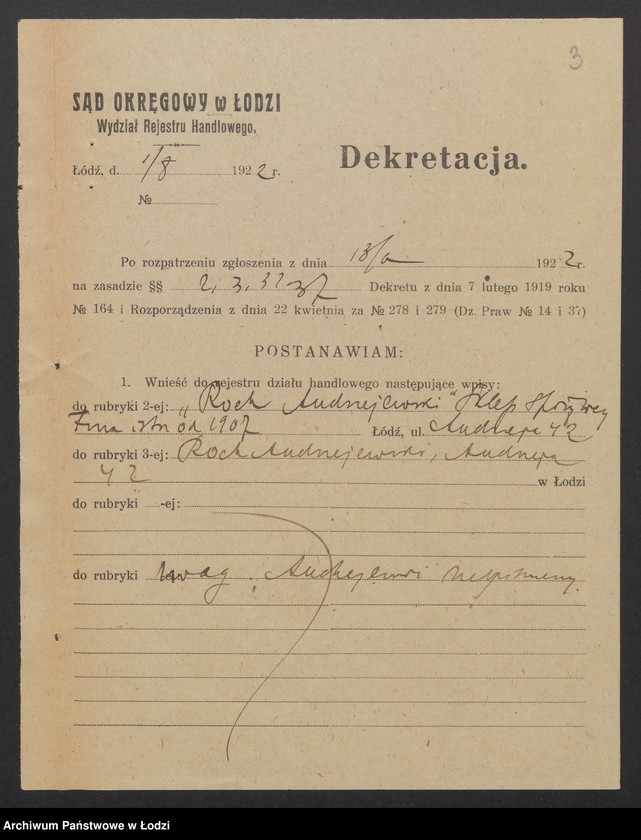 3
SĄD OKRĘGOWY w ŁODZI
Wydział Rejestru Handlowego.
Dekretacja.
Łódź, d. 1/8 1922 r.
№
Po rozpatrzeniu zgłoszenia z dnia 1922 r.
na zasadzie §§ 2, 3, 32 37 Dekretu z dnia 7 lutego 1919 roku
№ 164 i Rozporządzenia z dnia 22 kwietnia za № 278 i 279 (Dz. Praw № 14 i 37)
POSTANAWIAM:
1. Wnieść do rejestru działu handlowego następujące wpisy:
do rubryki 2-ej: „Roch Andrzejewski" Sklep Spożywczy
Firma istn od 1907 Łódź, ul. Andrzeja 42
do rubryki 3-ej: Roch Andrzejewski, Andrzeja
42 w Łodzi
do rubryki -ej:
do rubryki uwag. Andrzejewski niepiśmienny
Archiwum Państwowe w Łodzi